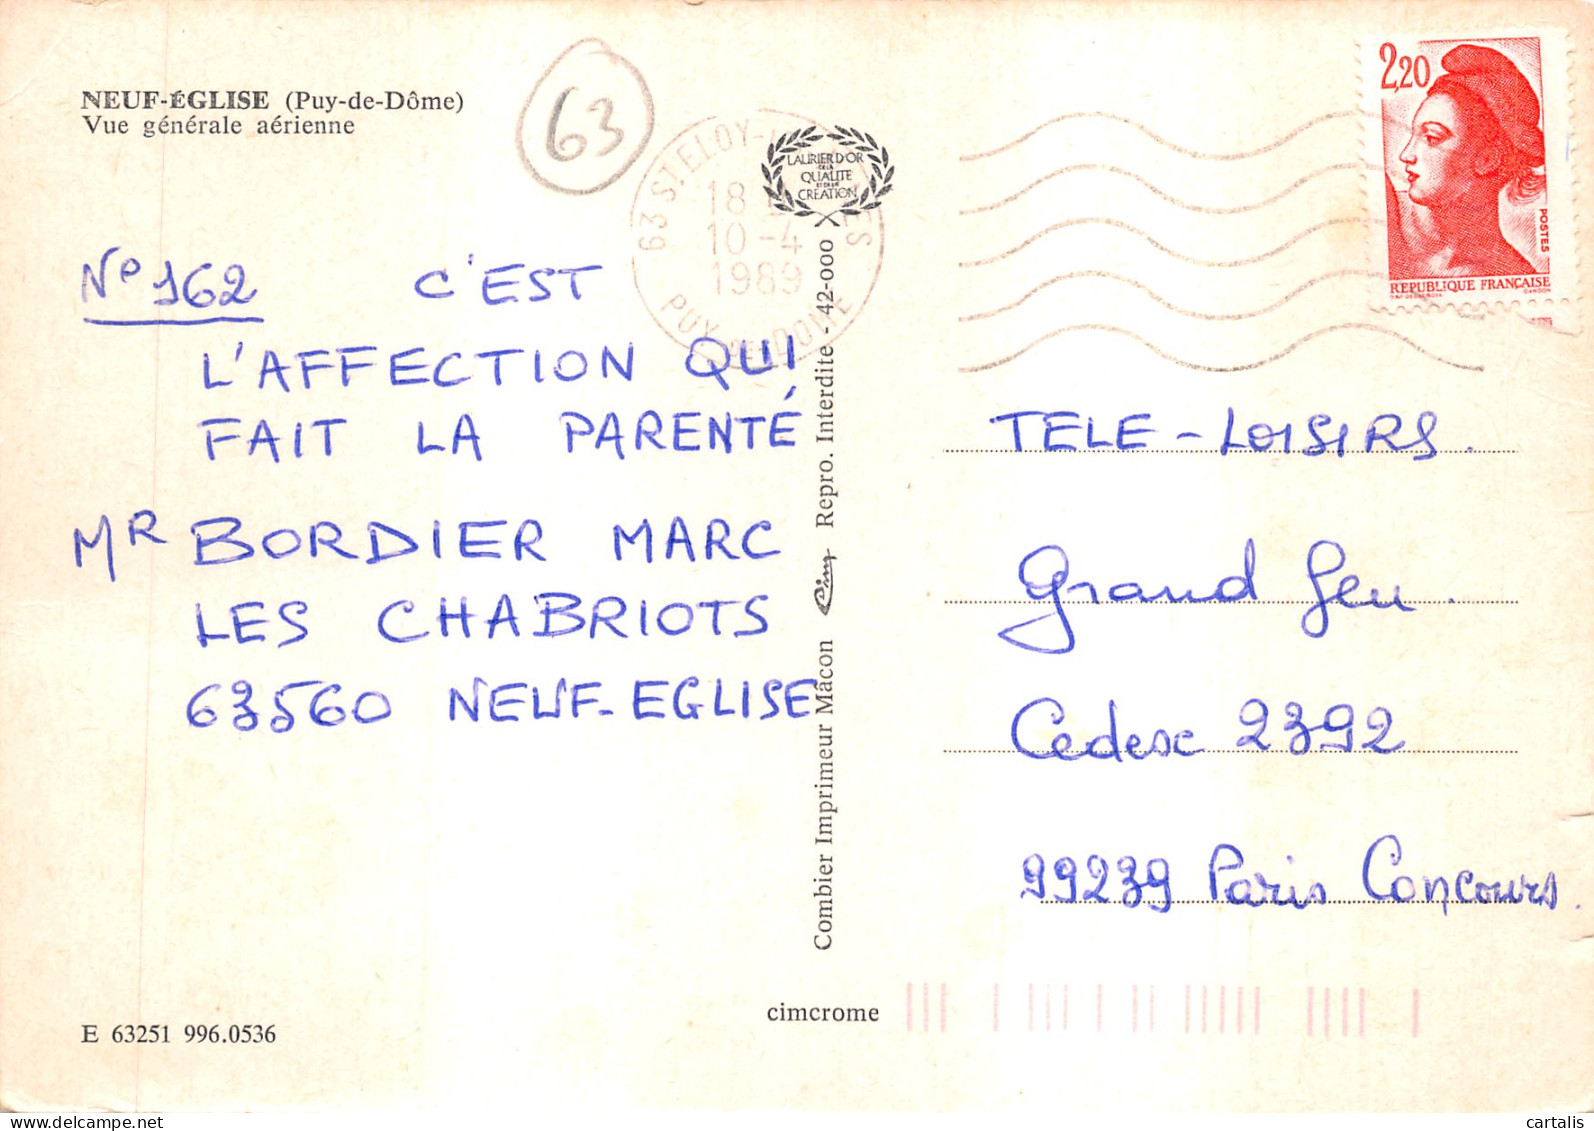 NEUF-ÉGLISE (Puy-de-Dôme)
Vue générale aérienne
63
63 ST. ELOY-
18
10-4
1989
PUY-DE-DOME
LAURIER D'OR
DE LA
QUALITE
ET DE LA
CREATION
2,20
POSTES
REPUBLIQUE FRANÇAISE
GANDON
N° 162 C'EST
L'AFFECTION QUI
FAIT LA PARENTÉ
MR BORDIER MARC
LES CHABRIOTS
63560 NEUF-EGLISE
Combier Imprimeur Mâcon Cim Repro. Interdite - 42-000
TELE-LOISIRS.
Grand Jeu.
Cedex 2392
99239 Paris Concours.
cimcrome
E 63251 996.0536
cartalis